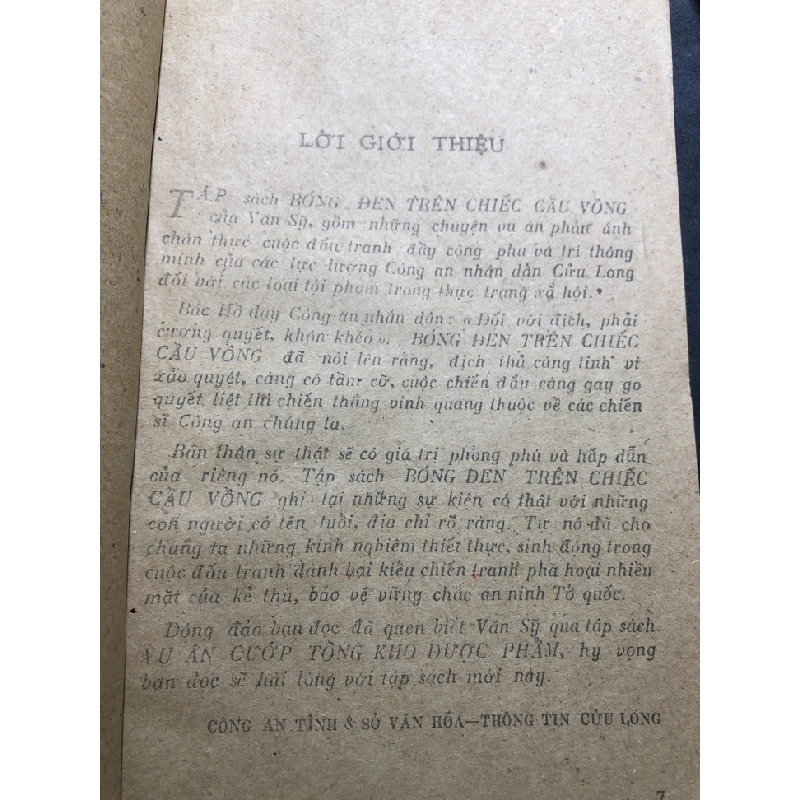 LỜI GIỚI THIỆU
TẬP sách BÓNG ĐEN TRÊN CHIẾC CẦU VỒNG
của Văn Sỹ, gồm những chuyện vụ án phản ánh
chân thực cuộc đấu tranh đầy công phu và trí thông
minh của các lực lượng Công an nhân dân Cửu Long
đối với các loại tội phạm trong thực trạng xã hội.
Bác Hồ dạy Công an nhân dân: «Đối với địch, phải
cương quyết, khôn khéo». BÓNG ĐEN TRÊN CHIẾC
CẦU VỒNG đã nói lên rằng, địch thủ càng tinh vi
xảo quyệt, càng có tầm cỡ, cuộc chiến đấu càng gay go
quyết liệt thì chiến thắng vinh quang thuộc về các chiến
sĩ Công an chúng ta.
Bản thân sự thật sẽ có giá trị phong phú và hấp dẫn
của riêng nó. Tập sách BÓNG ĐEN TRÊN CHIẾC
CẦU VỒNG ghi lại những sự kiện có thật với những
con người có tên, tuổi, địa chỉ rõ ràng. Tự nó đã cho
chúng ta những kinh nghiệm thiết thực, sinh động trong
cuộc đấu tranh đánh bại kiểu chiến tranh phá hoại nhiều
mặt của kẻ thù, bảo vệ vững chắc an ninh Tổ quốc.
Đông đảo bạn đọc đã quen biết Văn Sỹ qua tập sách
VỤ ÁN CƯỚP TỔNG KHO DƯỢC PHẨM, hy vọng
bạn đọc sẽ hài lòng với tập sách mới này.
CÔNG AN TỈNH & SỞ VĂN HÓA—THÔNG TIN CỬU LONG
7